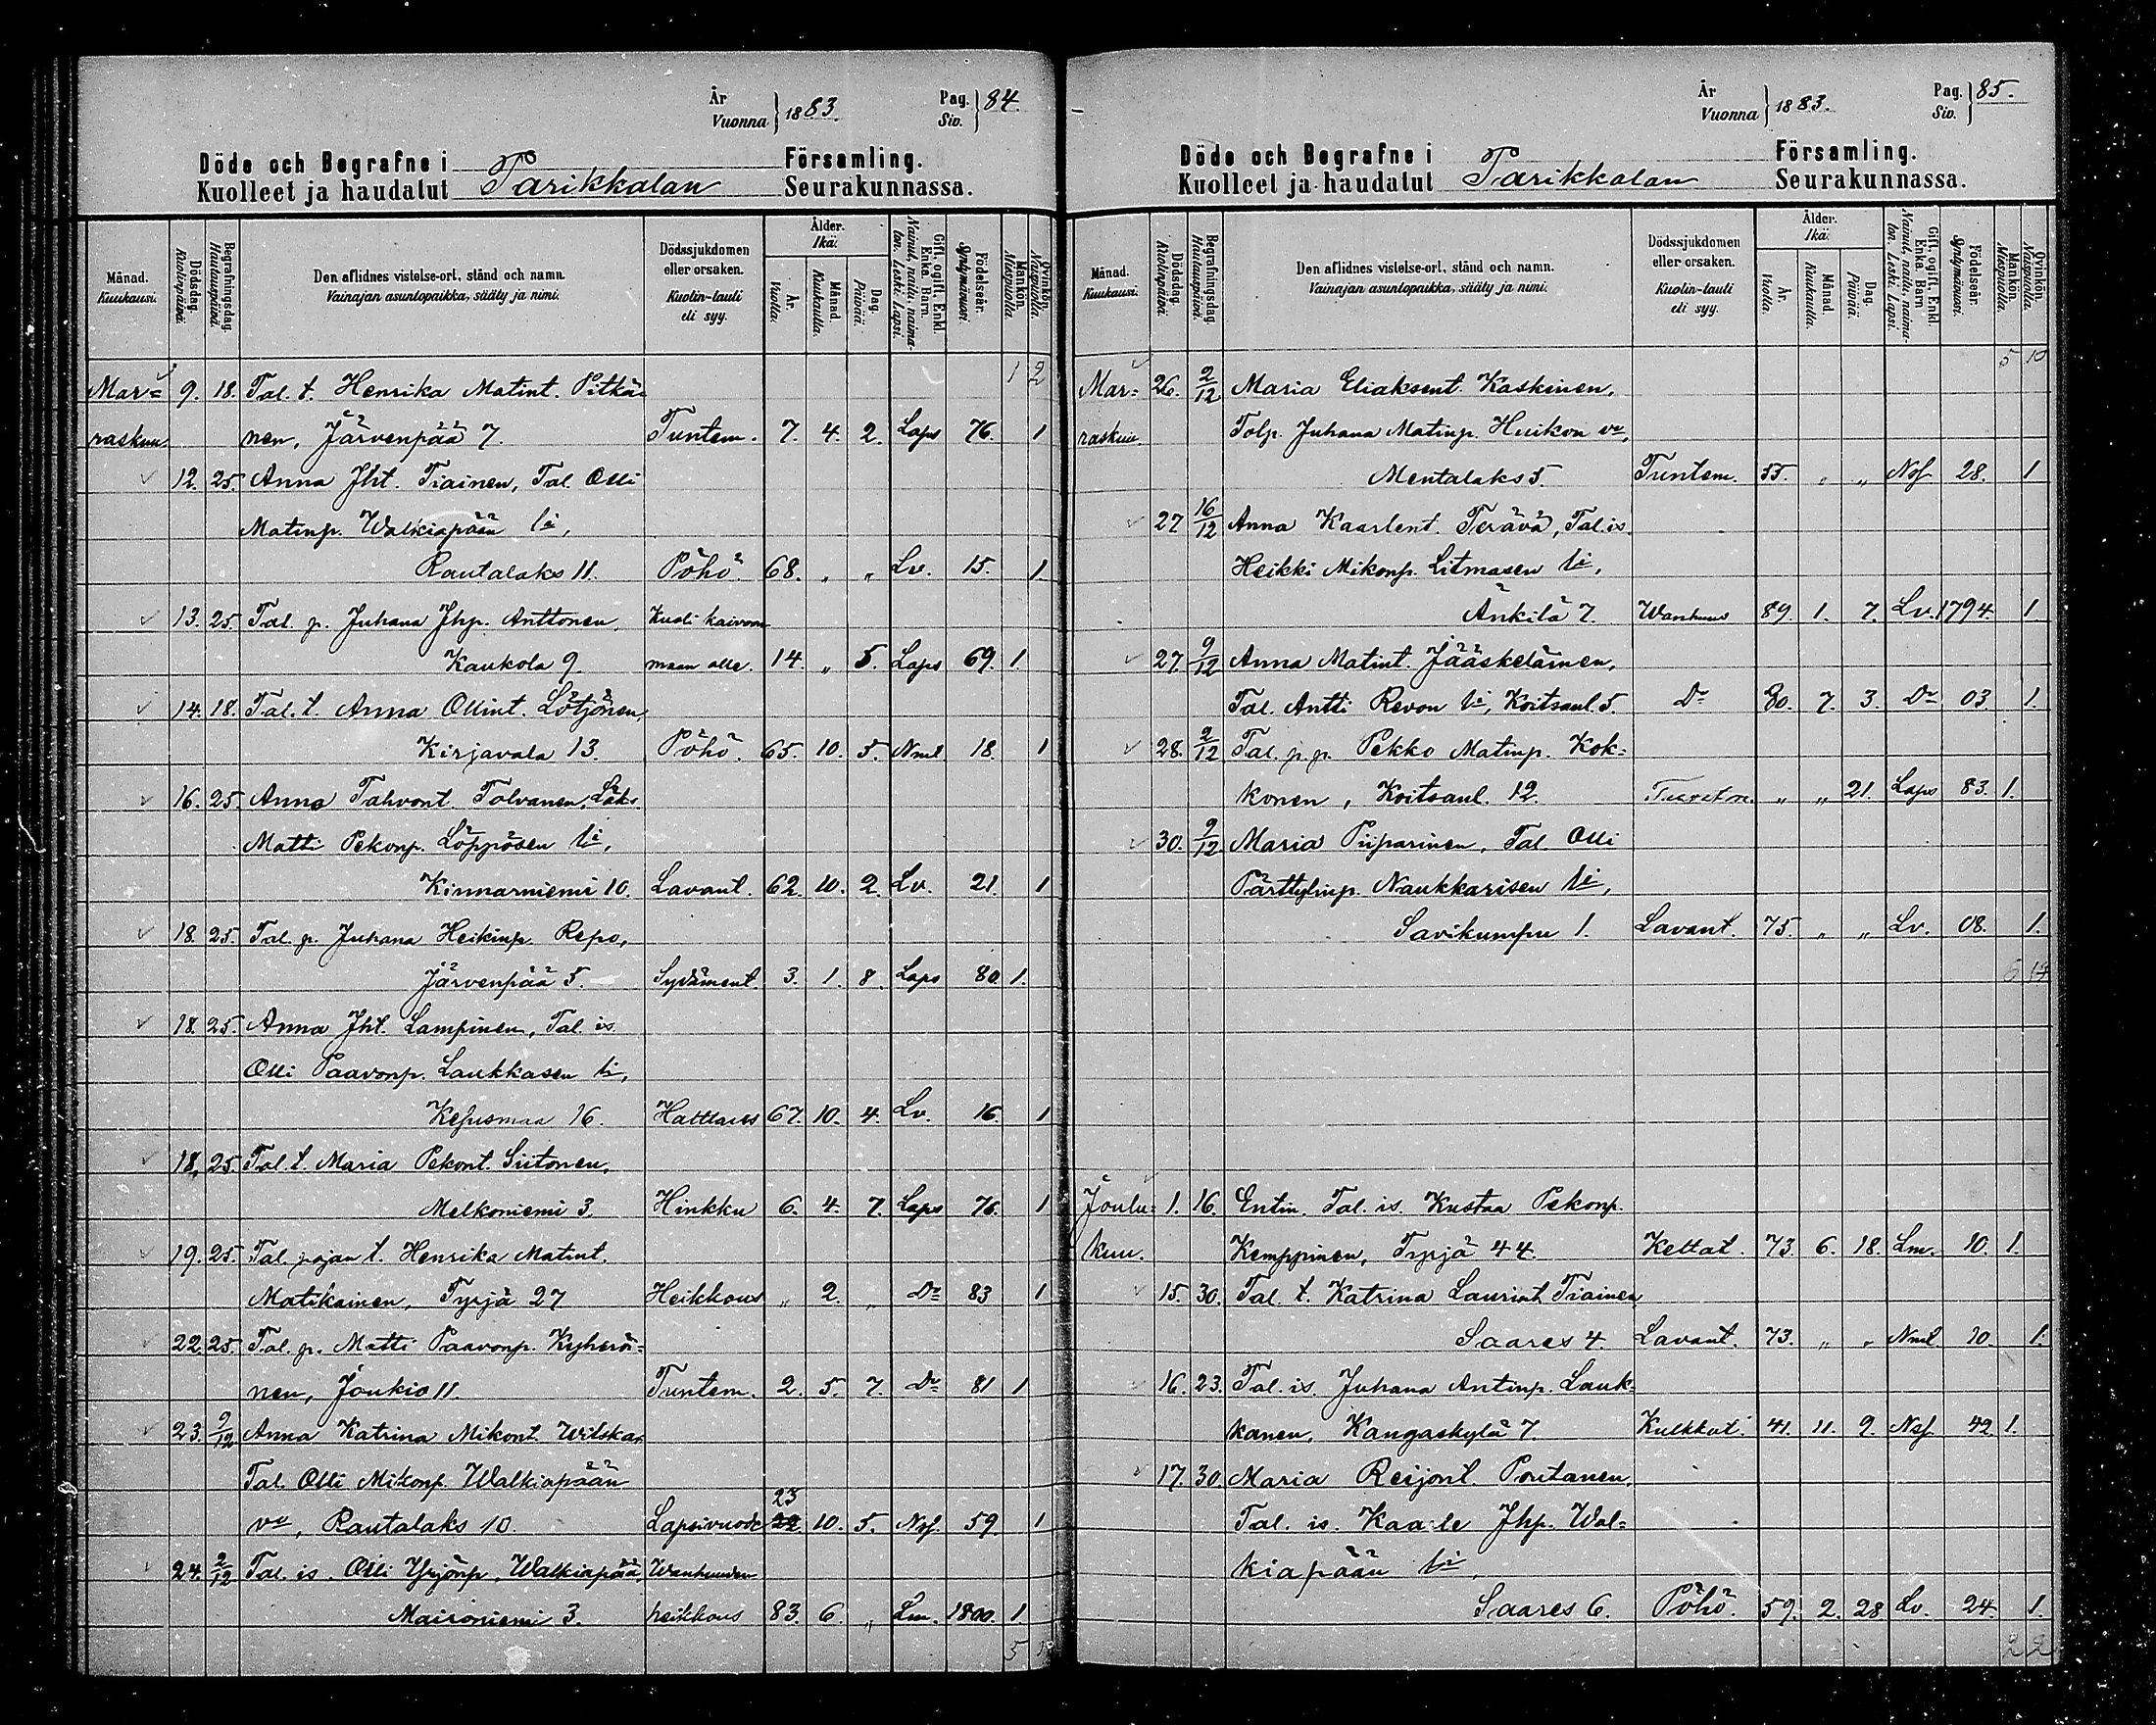 År Vuonna } 1883. Pag. Siv. } 84.
Döde och Begrafne i Parikkalan Församling.
Kuolleet ja haudatut Seurakunnassa.
Månad. Kuukausi. Dödsdag. Kuolinpäivä. Begrafningsdag. Hautauspäivä. Den aflidnes vistelse-ort, stånd och namn. Vainajan asuntopaikka, sääty ja nimi. Dödssjukdomen eller orsaken. Kuolin-tauti eli syy. Ålder. Ikä. År. Vuotta. Månad. Kuukautta. Dag. Päivää. Gift, ogift, Enkl. Enka. Barn. Nainut, naitu, naima-ton. Leski. Lapsi. Födelseår. Syntymävuosi. Mankön. Miespuolta. Qvinkön. Naispuolta.
1 2
Mar= 9. 18. Tal. t. Henrika Matint. Pitkä=
raskuu. nen, Järvenpää 7. Tuntem. 7. 4. 2. Laps 76. 1
12. 25. Anna Jht. Tiainen, Tal. Olli
Matinp. Walkiapään li,
Rautalaks 11. Pöhö. 68. „ „ Lv. 15. 1.
13. 25. Tal. p. Juhana Jhp. Anttonen, Kuoli kaivon
Kaukola 9. maan alle. 14. „ 5. Laps 69. 1.
14. 18. Tal. t. Anna Ollint. Lötjönen,
Kirjavala 13. Pöhö. 65. 10. 5. Nml 18. 1
16. 25. Anna Tahvont. Tolvanen, Läks.
Matti Pekonp. Löppösen li,
Kinnarniemi 10. Lavant. 62. 10. 2. Lv. 21. 1
18. 25. Tal. p. Juhana Heikinp. Repo,
Järvenpää 5. Sydäment. 3. 1. 8. Laps 80. 1.
18. 25. Anna Jht. Lampinen, Tal. is.
Olli Paavonp. Laukkasen li,
Kepusmaa 16. 67. 10. 4. Lv. 16. 1
18. 25. Tal. t. Maria Pekont. Siitonen,
Melkoniemi 3. Hinkku 6. 4. 7. Laps 76. 1
19. 25. Tal. pojan t. Henrika Matint.
Matikainen, Tyrjä 27 Heikkous „ 2. „ Do 83 1
22. 25. Tal. p. Matti Paavonp. Kyherö=
nen, Joukio 11. Tuntem. 2. 5. 7. Do 81 1
23. 9/12 Anna Katrina Mikont. Wilska,
Tal. Olli Mikonp. Walkiapään
23
vo, Rautalaks 10. Lapsivuode 22 10. 5. Nsf. 59. 1
24. 2/12 Tal. is. Olli Yrjönp. Walkiapää, Wanhuuden
Maironiemi 3. heikkous 83. 6. „ Lm. 1800. 1.
5
År Vuonna } 1883. Pag. Siv. } 85.
Döde och Begrafne i Parikkalan Församling.
Kuolleet ja haudatut Seurakunnassa.
Månad. Kuukausi. Dödsdag. Kuolinpäivä. Begrafningsdag. Hautauspäivä. Den aflidnes vistelse-ort, stånd och namn. Vainajan asuntopaikka, sääty ja nimi. Dödssjukdomen eller orsaken. Kuolin-tauti eli syy. Ålder. Ikä. År. Vuotta. Månad. Kuukautta. Dag. Päivää. Gift, ogift, Enkl. Enka. Barn. Nainut, naitu, naima-ton. Leski. Lapsi. Födelseår. Syntymävuosi. Mankön. Miespuolta. Qvinkön. Naispuolta.
5 10
Mar= 26. 2/12 Maria Eliaksent. Kaskinen,
raskuu. Tolp. Juhana Matinp. Huikon vo,
Mentalaks 5. Tuntem. 55. „ „ Nsf. 28. 1
27 16/12 Anna Kaarlent. Terävä, Tal. is.
Heikki Mikonp. Litmasen li,
Änkilä 7. Wanhuus 89. 1. 7. Lv. 1794. 1.
27. 9/12 Anna Matint. Jääskeläinen,
Tal. Antti Revon li, Koitsanl. 5. Do 80. 7. 3. Do 03 1.
28. 2/12 Tal. p. p. Pekko Matinp. Kok=
konen, Koitsanl. 12. Tuntem. „ „ 21. Laps 83. 1.
30. 9/12. Maria Piiparinen, Tal. Olli
Pärttylinp. Naukkarisen li,
Savikumpu 1. Lavant. 75. „ „ Lv. 08. 1.
6 14
Joulu= 1. 16. Entin. Tal. is. Kustaa Pekonp.
kuu. Kemppinen, Tyrjä 44. Keltat. 73. 6. 18. Lm. 10. 1.
15. 30. Tal. t. Katrina Laurint. Tiainen
Saares 4. Lavant. 73. „ „ Nml. 10. 1.
16. 23. Tal. is. Juhana Antinp. Lauk=
kanen, Kangaskylä 7. Kulkkut. 41. 11. 9. Nsf. 42 1.
17. 30. Maria Reijont. Poutanen,
Tal. is. Kaarle Jhp. Wal=
kiapään li,
Saares 6. Pöhö. 59. 2. 28 Lv. 24. 1.
2 2